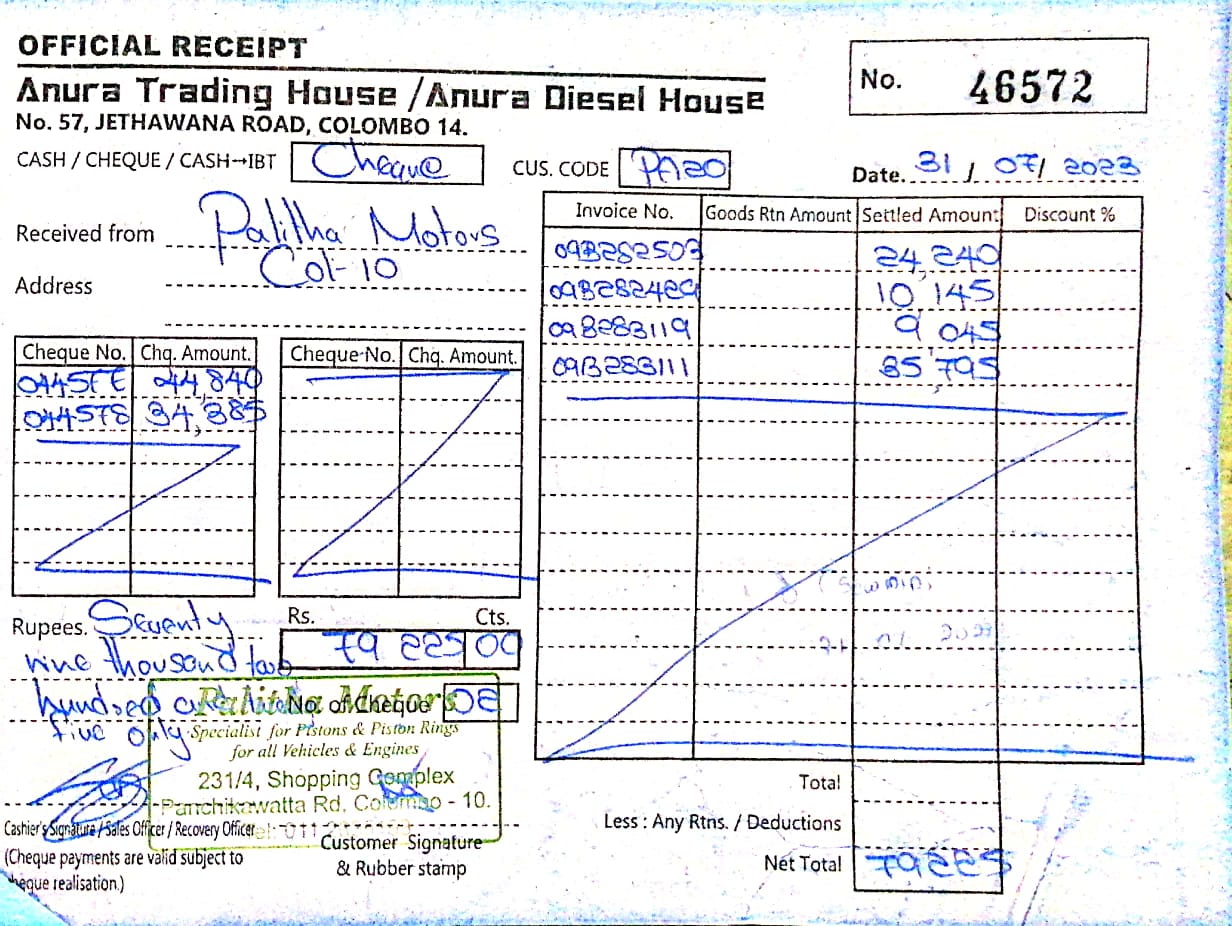 OFFICIAL RECEIPT
Anura Trading House / Anura Diesel House
No. 57, JETHAWANA ROAD, COLOMBO 14.
No. 46572
CASH / CHEQUE / CASH→IBT Cheque
CUS. CODE PA20
Date. 31 / 07/ 2023
Received from Palitha Motors
Address Col-10
Invoice No. Goods Rtn Amount Settled Amount Discount %
09B282503 24,240
10,145
09B283119 9,045
09B283111 35,795
Cheque No. Chq. Amount. Cheque No. Chq. Amount.
44,840
044578 34,385
Rupees. Seventy
nine thousand two
hundred and
five only
Rs. Cts.
79 225 00
No. of Cheque 02
Palitha Motors
Specialist for Pistons & Piston Rings
for all Vehicles & Engines
231/4, Shopping Complex
Panchikawatta Rd, Colombo - 10.
Cashier's Signature / Sales Officer / Recovery Officer
(Cheque payments are valid subject to
cheque realisation.)
Customer Signature
& Rubber stamp
Total
Less : Any Rtns. / Deductions
Net Total 79225